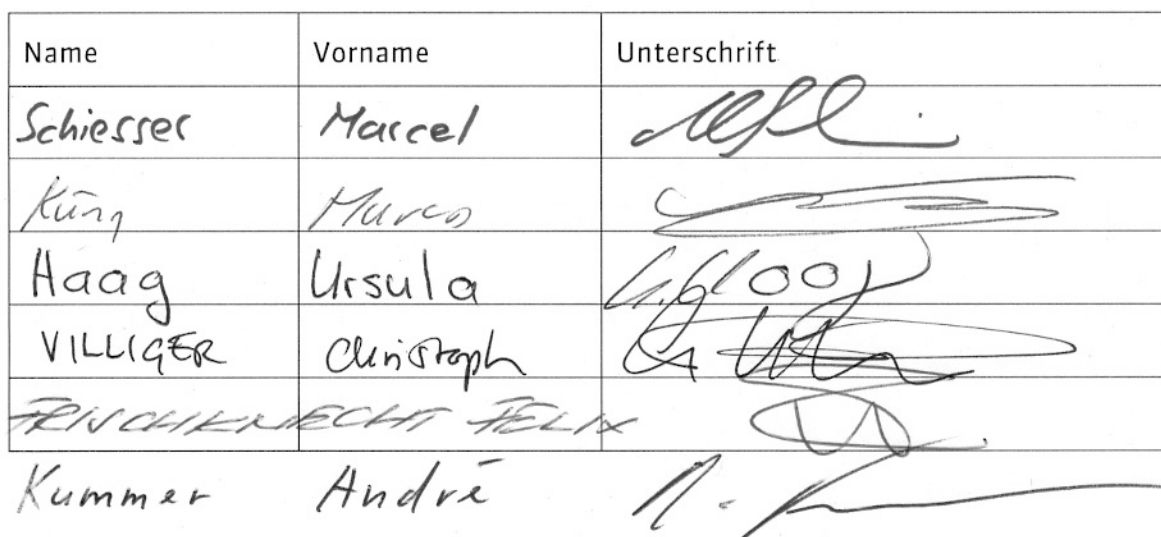 Name Vorname Unterschrift
Schiesser Marcel
Küng Marco
Haag Ursula
VILLIGER Christoph
FRISCHKNECHT FELIX
Kummer André